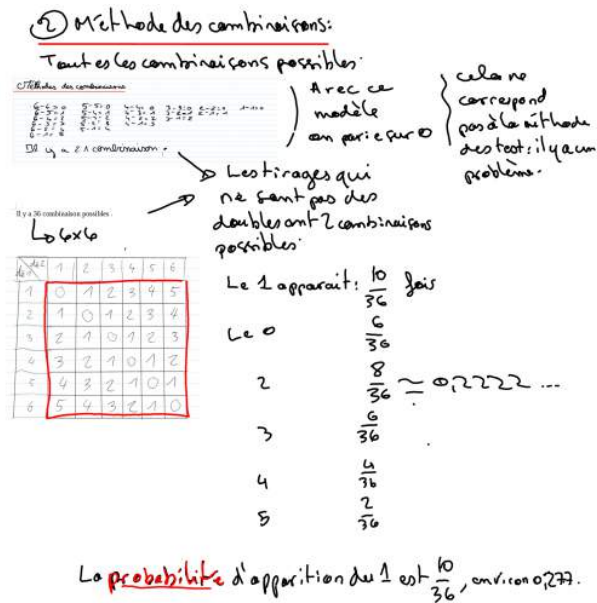 2) Méthode des combinaisons:
Toutes les combinaisons possibles:
Méthodes des combinaisons
6-6=0 5-5=0 4-4=0 3-3=0 2-2=0 1-1=0
Il y a 21 combinaison.
Avec ce
modèle
on parie sur 0
cela ne
correspond
pas à la méthode
des test: il y a un
problème.
Les tirages qui
ne sont pas des
doubles ont 2 combinaisons
possibles.
Il y a 36 combinaison possibles.
↳ 6x6
dé 2 1 2 3 4 5 6
dé 1
1 0 1 2 3 4 5
2 1 0 1 2 3 4
3 2 1 0 1 2 3
4 3 2 1 0 1 2
5 4 3 2 1 0 1
6 5 4 3 2 1 0
Le 1 apparait: 10/36 fois
Le 0 6/36
2 8/36 ≈ 0,2222 ...
3 6/36
4 4/36
5 2/36
La probabilité d'apparition du 1 est 10/36, environ 0,277.